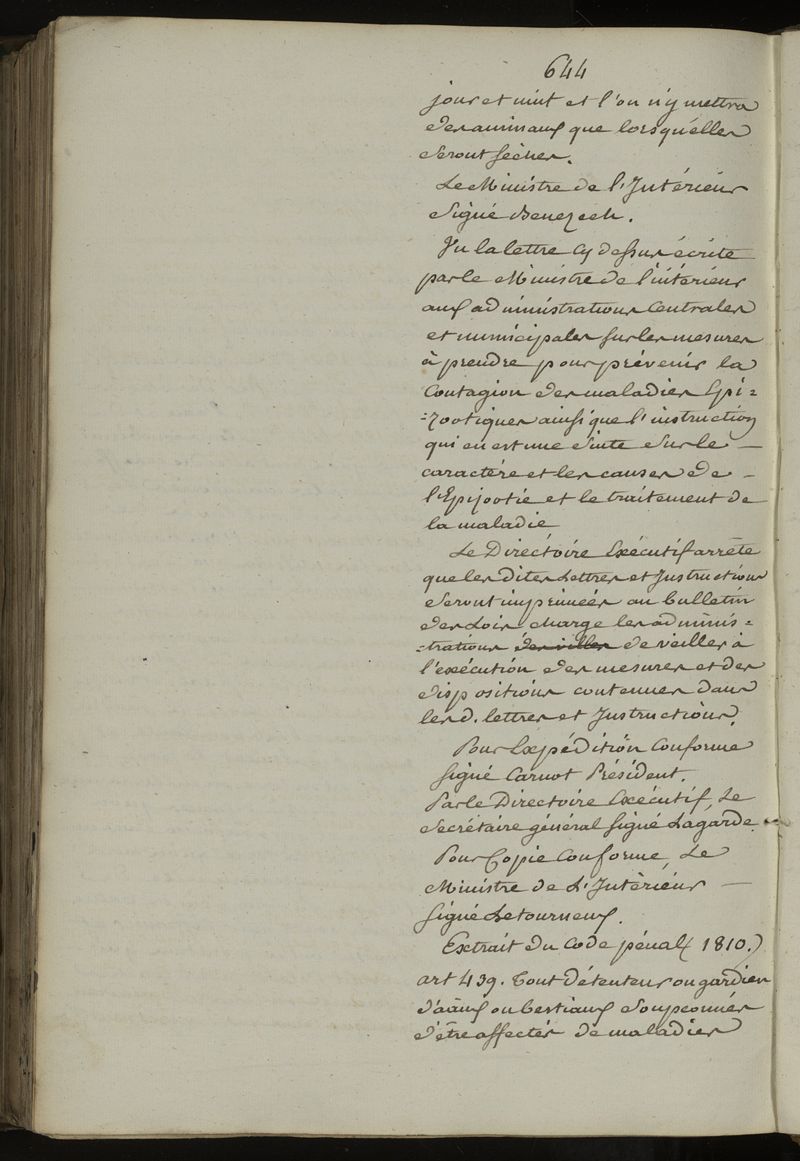 644
jour et nuit et l'on n'y mettra
des animaux que lorsqu'elles
seront sèches.
Le Ministre de l'Intérieur
Signé Benezech.
Vu la lettre Cy dessus écrite
par le Ministre de l'intérieur
aux administrations Centrales
et municipales sur les mesures
à prendre pour prévenir la
Contagion des maladies Epi=
=zootiques ainsi que l'instruction
qui en est une suite sur le —
caractère et les causes de —
l'Epizootie et le traitement de
la maladie
Le Directoire Exécutif arrête
que les dites Lettres et Instructions
seront imprimées au bulletin
des Loix charge les adminis=
=trations des villes de veiller à
l'exécution des mesures et des
dispositions contenues dans
les d. lettres et Instructions.
Pour Expédition Conforme
signé Carnot Président.
Par le Directoire Exécutif, Le
Secrétaire général signé Lagarde.
Pour Copie Conforme, Le
Ministre de L'Intérieur —
signé Letourneux.
Extrait du Code pénal (1810.)
art 439. Tout détenteur ou gardien
d'aâux ou bestiaux soupçonnés
d'être affectés de maladies